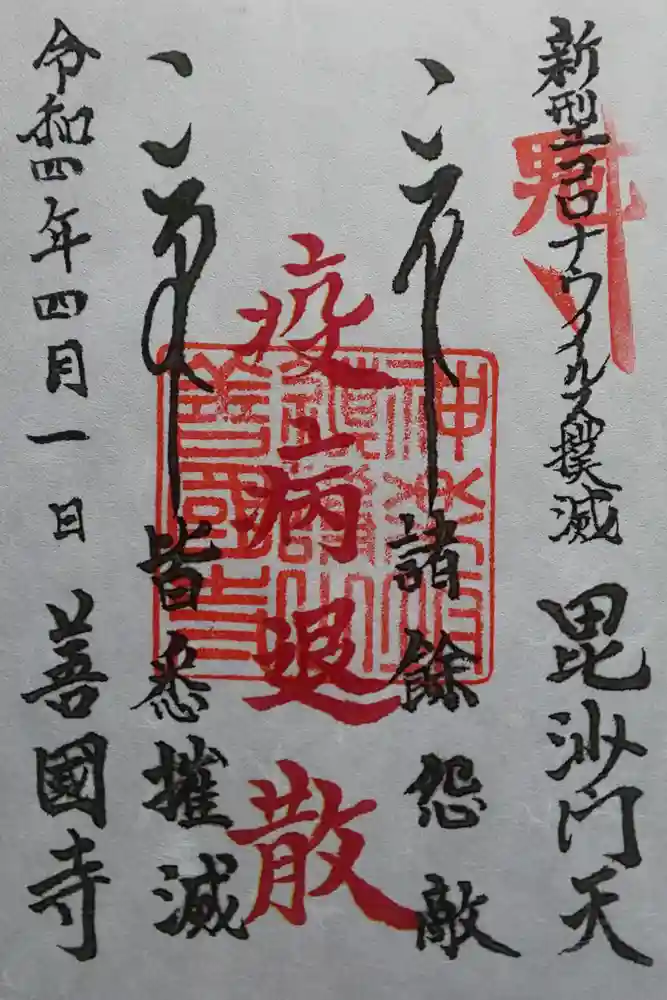 新型コロナウイルス撲滅 毘沙門天
諸餘怨敵
疫病退散
皆悉摧滅
令和四年四月一日 善國寺
神楽坂
鎮護山
善國寺